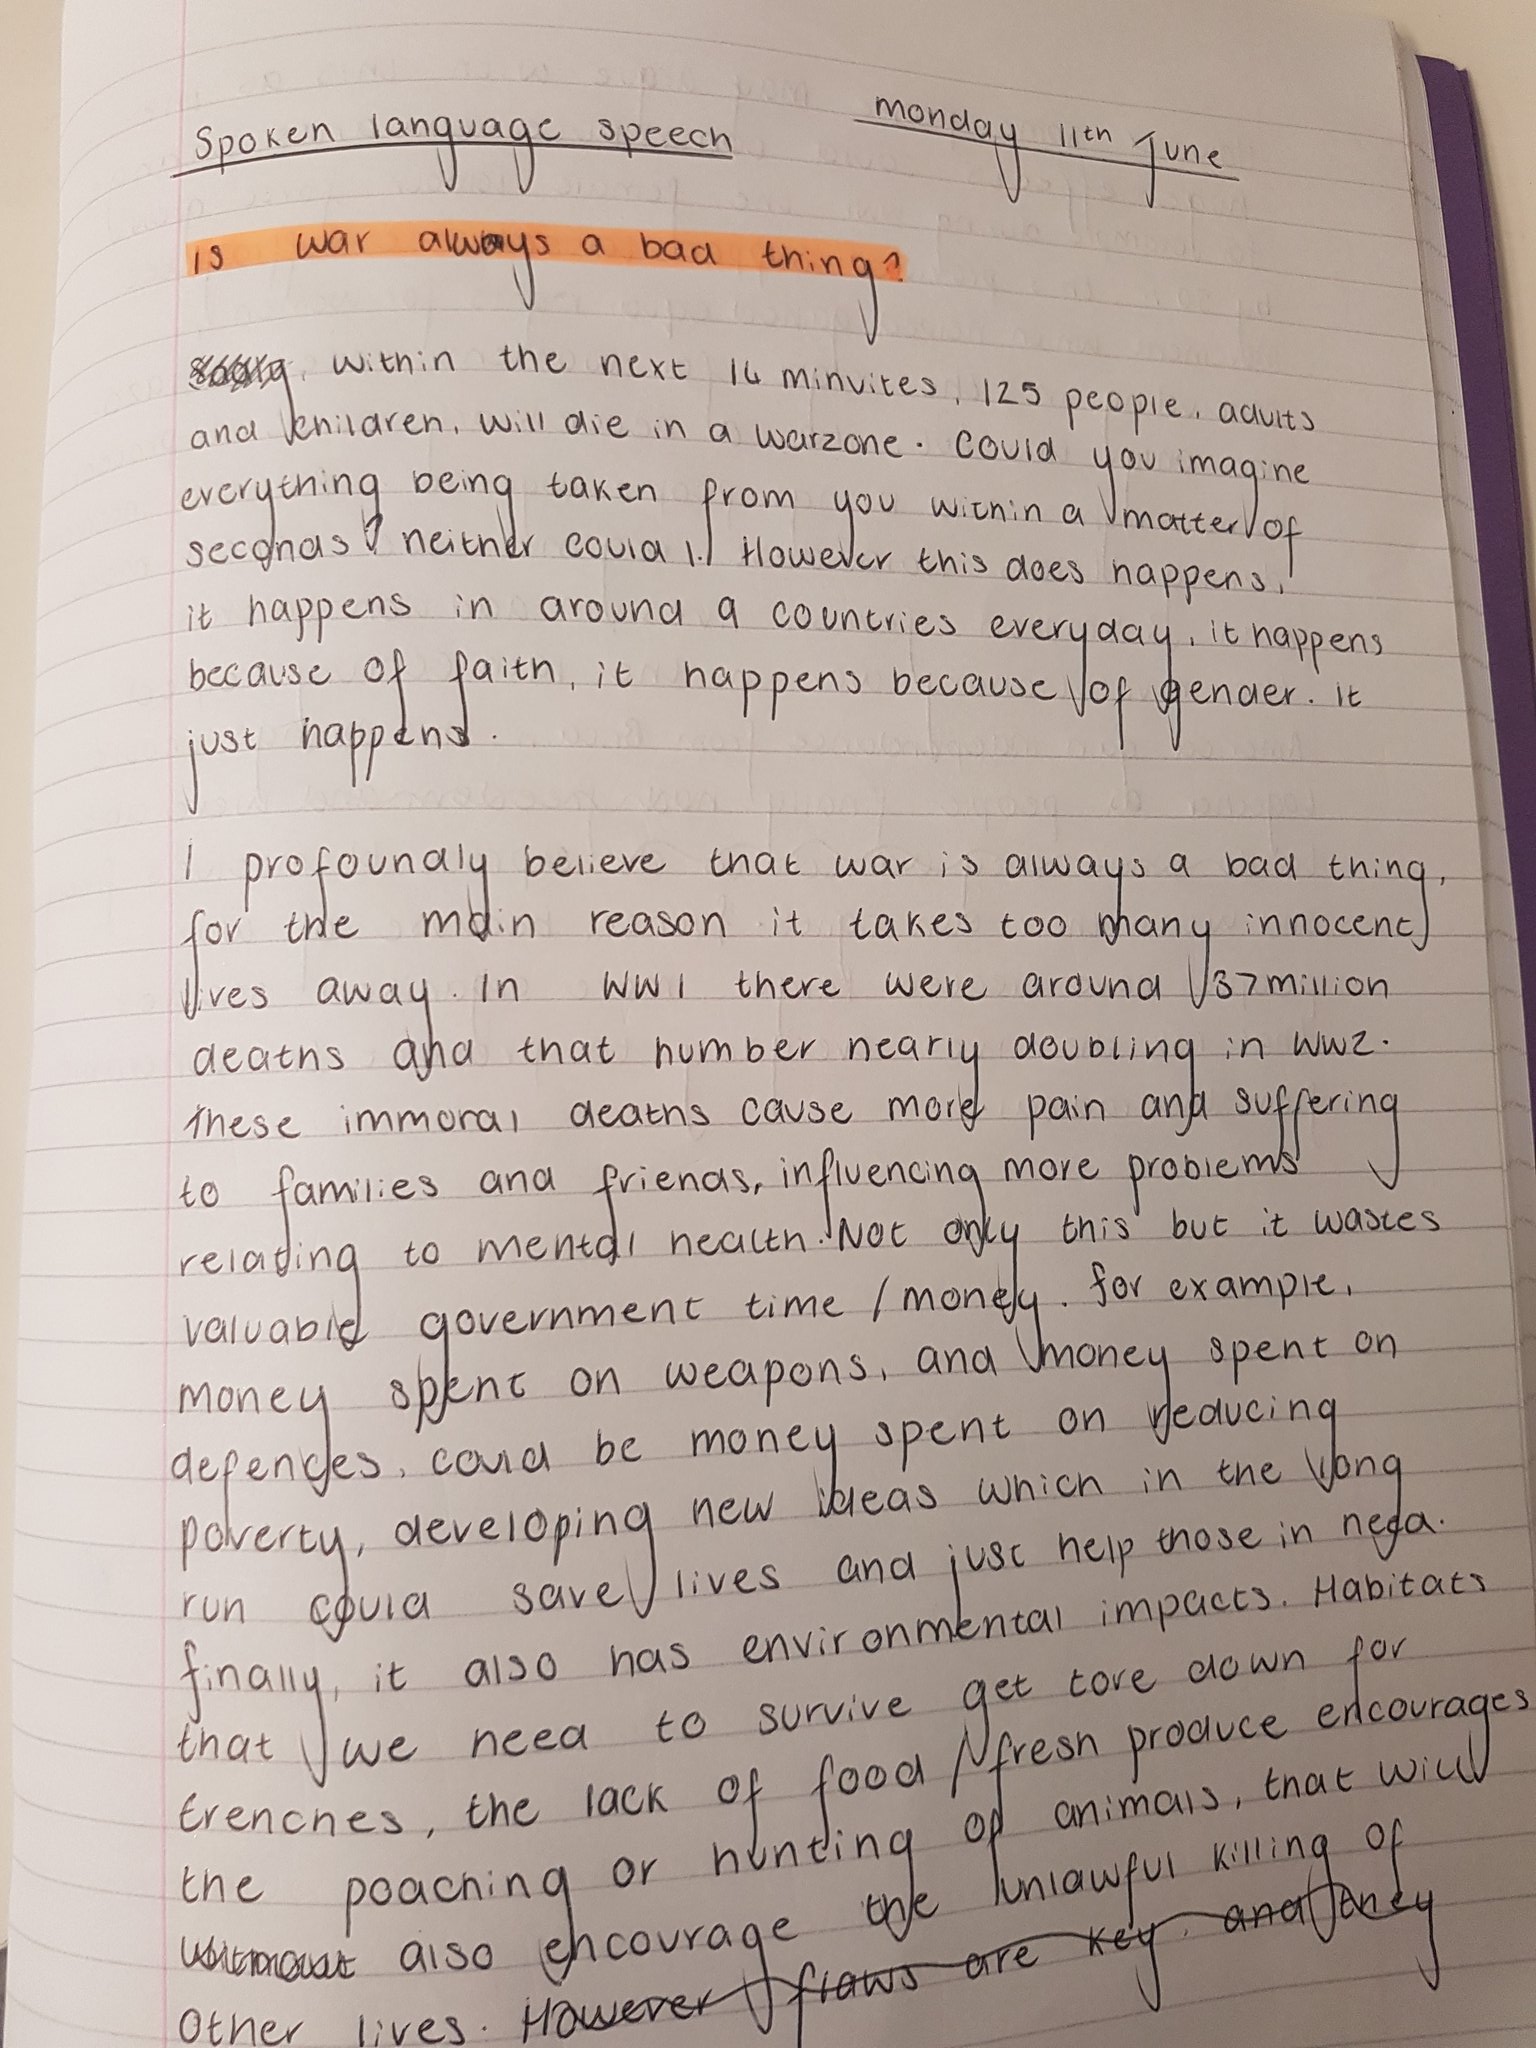 Spoken language speech
monday 11th June
is war always a bad thing?
within the next 14 minuites, 125 people, adults
and children, will die in a warzone. Could you imagine
everything being taken from you within a matter of
seconds? neither could I. However this does happens,
it happens in around 9 countries everyday, it happens
because of faith, it happens because of gender. it
just happens.
I profoundly believe that war is always a bad thing,
for the main reason it takes too many innocent
lives away. In WW1 there were around 37 million
deaths and that number nearly doubling in WW2.
These immoral deaths cause more pain and suffering
to families and friends, influencing more problems
relating to mental health. Not only this but it wastes
valuable government time / money. for example,
money spent on weapons, and money spent on
defences, could be money spent on reducing
poverty, developing new ideas which in the long
run could save lives and just help those in need.
finally, it also has environmental impacts. Habitats
that we need to survive get tore down for
trenches, the lack of food / fresh produce encourages
the poaching or hunting of animals, that will
also encourage the unlawful killing of
Other lives. However flaws are key. and they